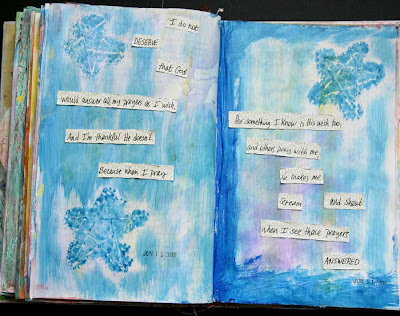 I do not
DESERVE
that God
would answer all my prayers as I wish.
And I'm thankful He doesn't.
Because when I pray
for something I know is His wish too,
and others pray with me,
He makes me
Scream And Shout
When I see those prayers
ANSWERED